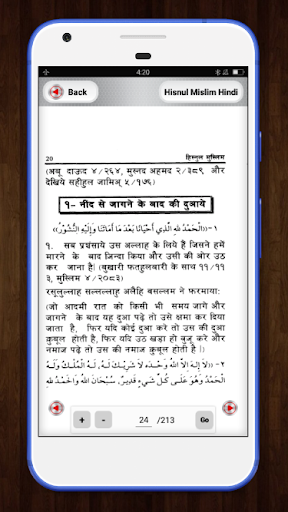 4:20
Back
Hisnul Mislim Hindi
20 हिस्नुल मुस्लिम
(अबू दाऊद ४/२६४, मुस्नद अहमद २/३८९ और
देखिये सहीहुल जामिअ् ५/१७३)
१- नींद से जागने के बाद की दुआयें
١-((الْحَمْدُ لِلهِ الَّذِي أَحْيَانَا بَعْدَ مَا أَمَاتَنَا وَإِلَيْهِ النُّشُورُ))
१. सब प्रशंसाये उस अल्लाह के लिये हैं जिसने हमें
मारने के बाद जिन्दा किया और उसी की ओर उठ
कर जाना है। (बुखारी फतहुलबारी के साथ ११/११
३, मुस्लिम ४/२०८३)
रसूलुल्लाह सल्लल्लाहु अलैहि वसल्लम ने फरमाया:
(जो आदमी रात को किसी भी समय जागे और
जागने के बाद यह दुआ पढ़े तो उसे क्षमा कर दिया
जाता है, फिर यदि कोई दुआ करे तो उस की दुआ
कुबूल होती है, फिर यदि उठ खड़ा हो वुजू करे और
नमाज पढ़े तो उस की नमाज कुबूल होती है।)
٢- ((لَا إِلَهَ إِلَّا اللهُ وَحْدَهُ لَا شَرِيكَ لَهُ، لَهُ الْمُلْكُ وَلَهُ
الْحَمْدُ وَهُوَ عَلَى كُلِّ شَيْءٍ قَدِيرٌ، سُبْحَانَ اللهِ وَالْحَمْدُ لِلهِ
+ - 24 /213 Go